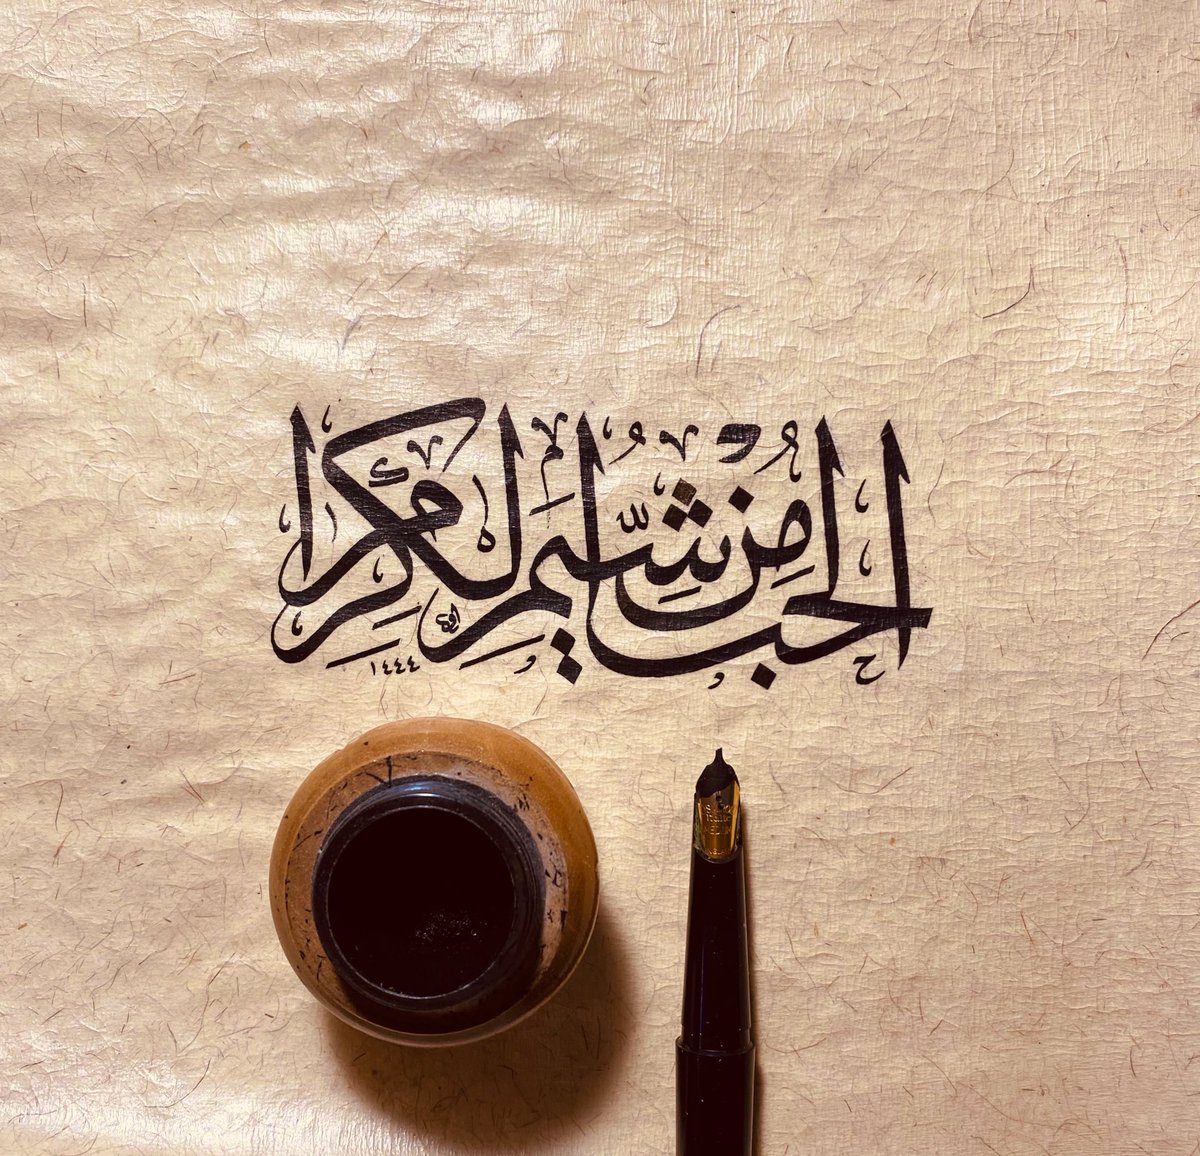 الحب من شيم الكرام
١٤٤٤